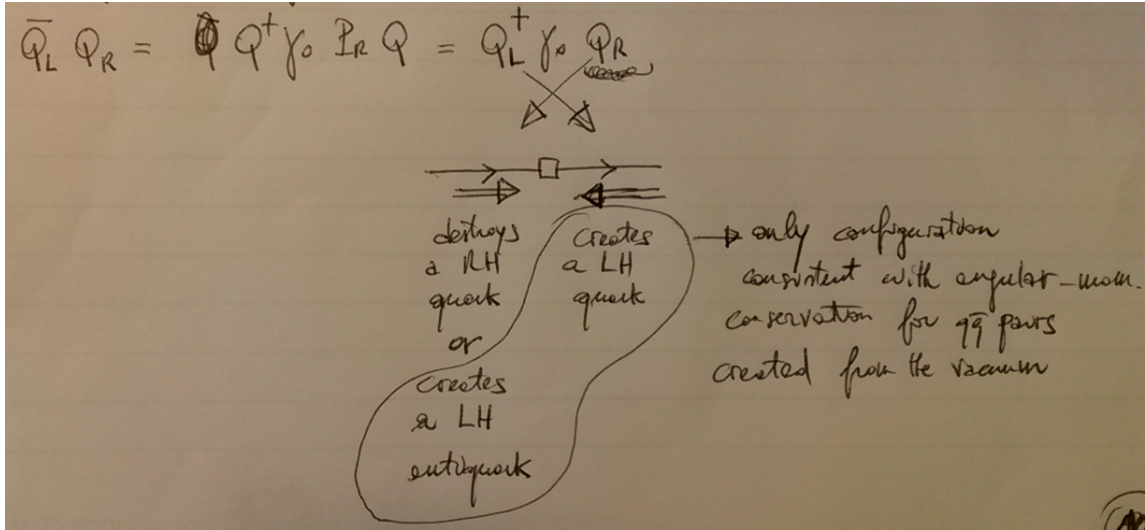 Q̄_L Q_R = Q⁺ γ₀ P_R Q = Q_L⁺ γ₀ Q_R
destroys
a RH
quark
or
creates
a LH
antiquark
creates
a LH
quark
→ only configuration
consistent with angular-mom.
conservation for qq̄ pairs
created from the vacuum